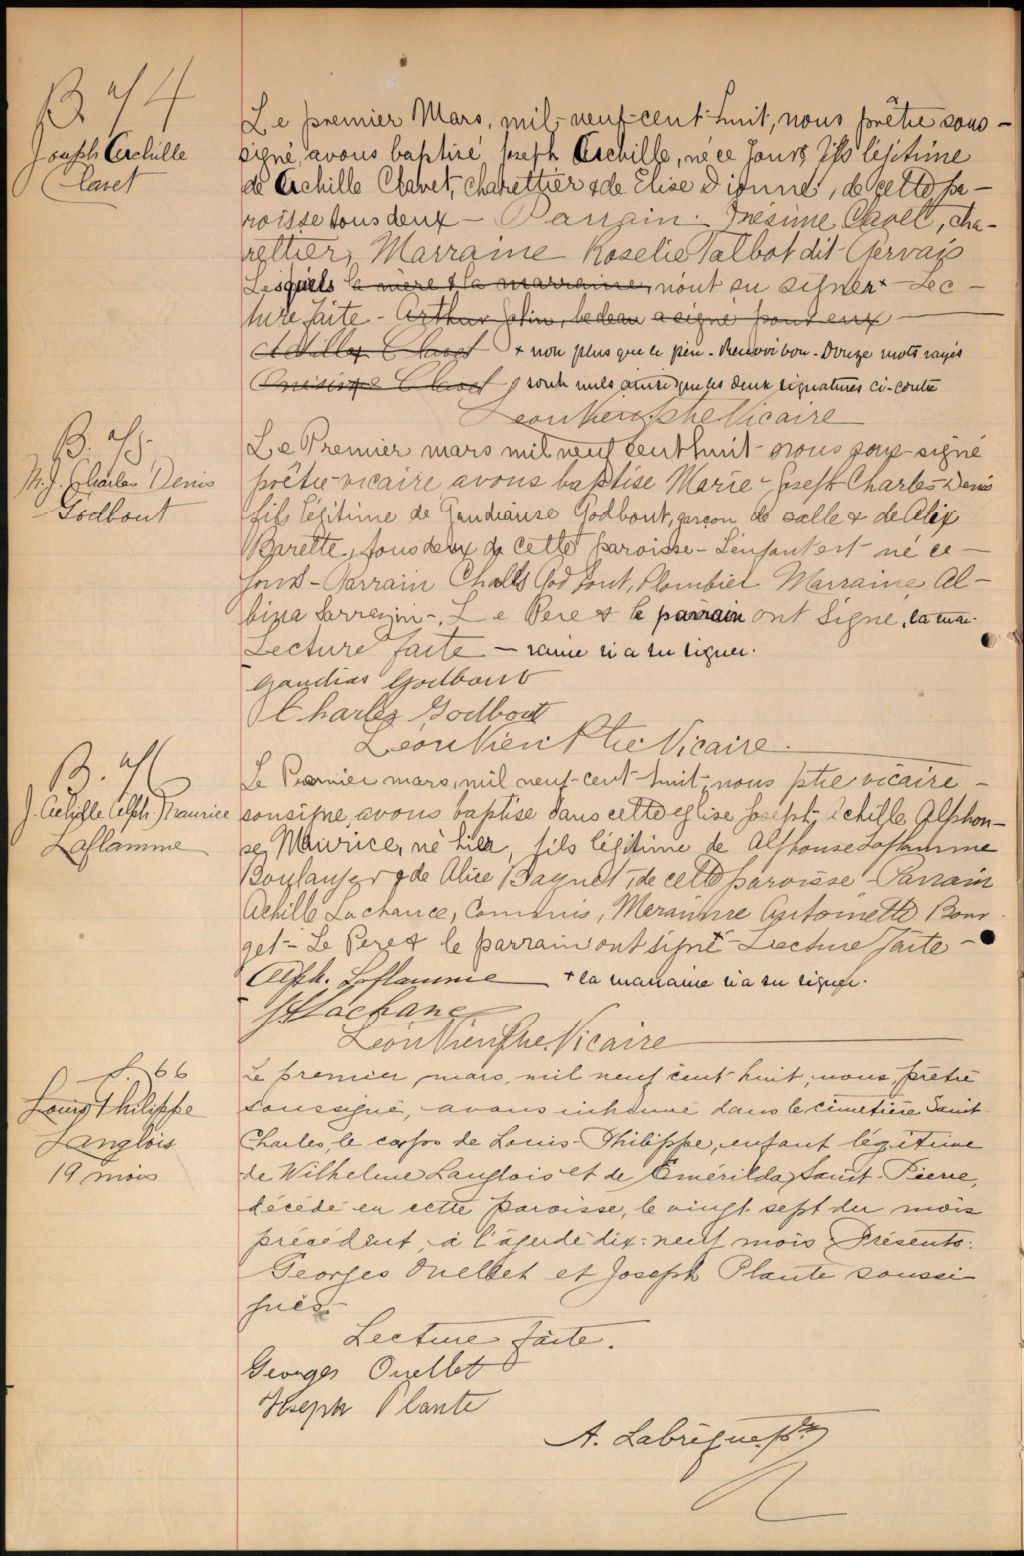 B. 74
Joseph Archille
Clavet
Le premier Mars, mil-neuf-cent-huit, nous prêtre sous-
signé, avons baptisé Joseph Archille, né ce jour, fils légitime
de Achille Clavet, charettier & de Elise Dionne, de cette pa-
roisse tous deux - Parrain. Onésime Clavet, cha-
rettier, Marraine Roselie Talbot dit Gervais
Lesquels la mère & la marraine, n'ont su signer + Lec-
ture faite - Arthur Jolin, bedeau a signé pour eux
Achille Clavet + non plus que le père - Renvoi bon - Douze mots rayés
Onésime Clavet sont nuls ainsi que les deux signatures ci-contre
Léon Vien, Ptre Vicaire
B. 75
M. J. Charles Denis
Godbout
Le Premier mars mil neuf cent huit nous sous-signé
prêtre-vicaire avons baptisé Marie-Joseph-Charles-Denis
fils légitime de Gaudiause Godbout, garçon de salle & de Alix
Barette, tous deux de cette paroisse - L'enfant est né ce
jour - Parrain Charles Godbout, Plombier Marraine Al-
bina Sarrazin - Le Pere & le parrain ont signé, la mar-
Lecture faite - raine n'a su signer.
Gaudias Godbout
Charles Godbout
Léon Vien Ptre Vicaire
B. 76
J. Achille Alph. Maurice
Laflamme
Le Premier mars, mil neuf-cent-huit, nous ptre vicaire -
sousigne, avons baptise dans cette eglise Joseph, Achille Alphon-
se, Maurice, né hier, fils légitime de Alfhonse Laflamme
Boulanger & de Alice Paquet, de cette paroisse - Parrain
Achille Lachance, Commis, Meraine Antoinette Bour-
get - Le Pere & le parrain ont signé + Lecture faite -
Alph. Laflamme + la marraine n'a su signer.
Lachance
Léon Vien Ptre. Vicaire
S. 66
Louis Philippe
Langlois
19 mois
Le premier mars, mil neuf cent huit, nous, prêtre
soussigné, avons inhumé dans le cimetière Saint-
Charles, le corps de Louis-Philippe, enfant légitime
de Wilhelme Langlois et de Emérilda Saint-Pierre,
décédé en cette paroisse, le vingt-sept du mois
précédent, à l'âge de dix-neuf mois. Présents:
Georges Ouellet et Joseph Plante soussi-
gnés.
Lecture faite.
Georges Ouellet
Joseph Plante
A. Labrèque, ptre